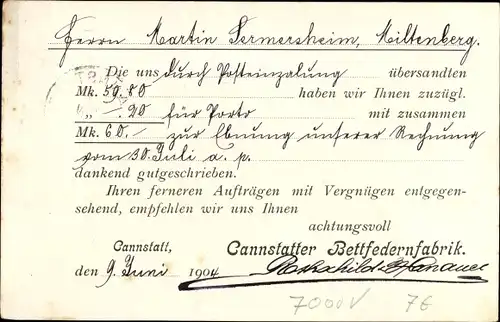 Herrn Martin Germersheim, Miltenberg.
Die uns durch Posteinzalung übersandten
Mk. 59.80 haben wir Ihnen zuzügl.
„ -.20 für Porto mit zusammen
Mk. 60.- zur Ebnung unserer Rechnung
vom 30. Juli a. p.
dankend gutgeschrieben.
Ihren ferneren Aufträgen mit Vergnügen entgegen-
sehend, empfehlen wir uns Ihnen
achtungsvoll
Cannstatt, Cannstatter Bettfedernfabrik.
den 9. Juni 1904 Rothschild & Hanauer
7000V 7€